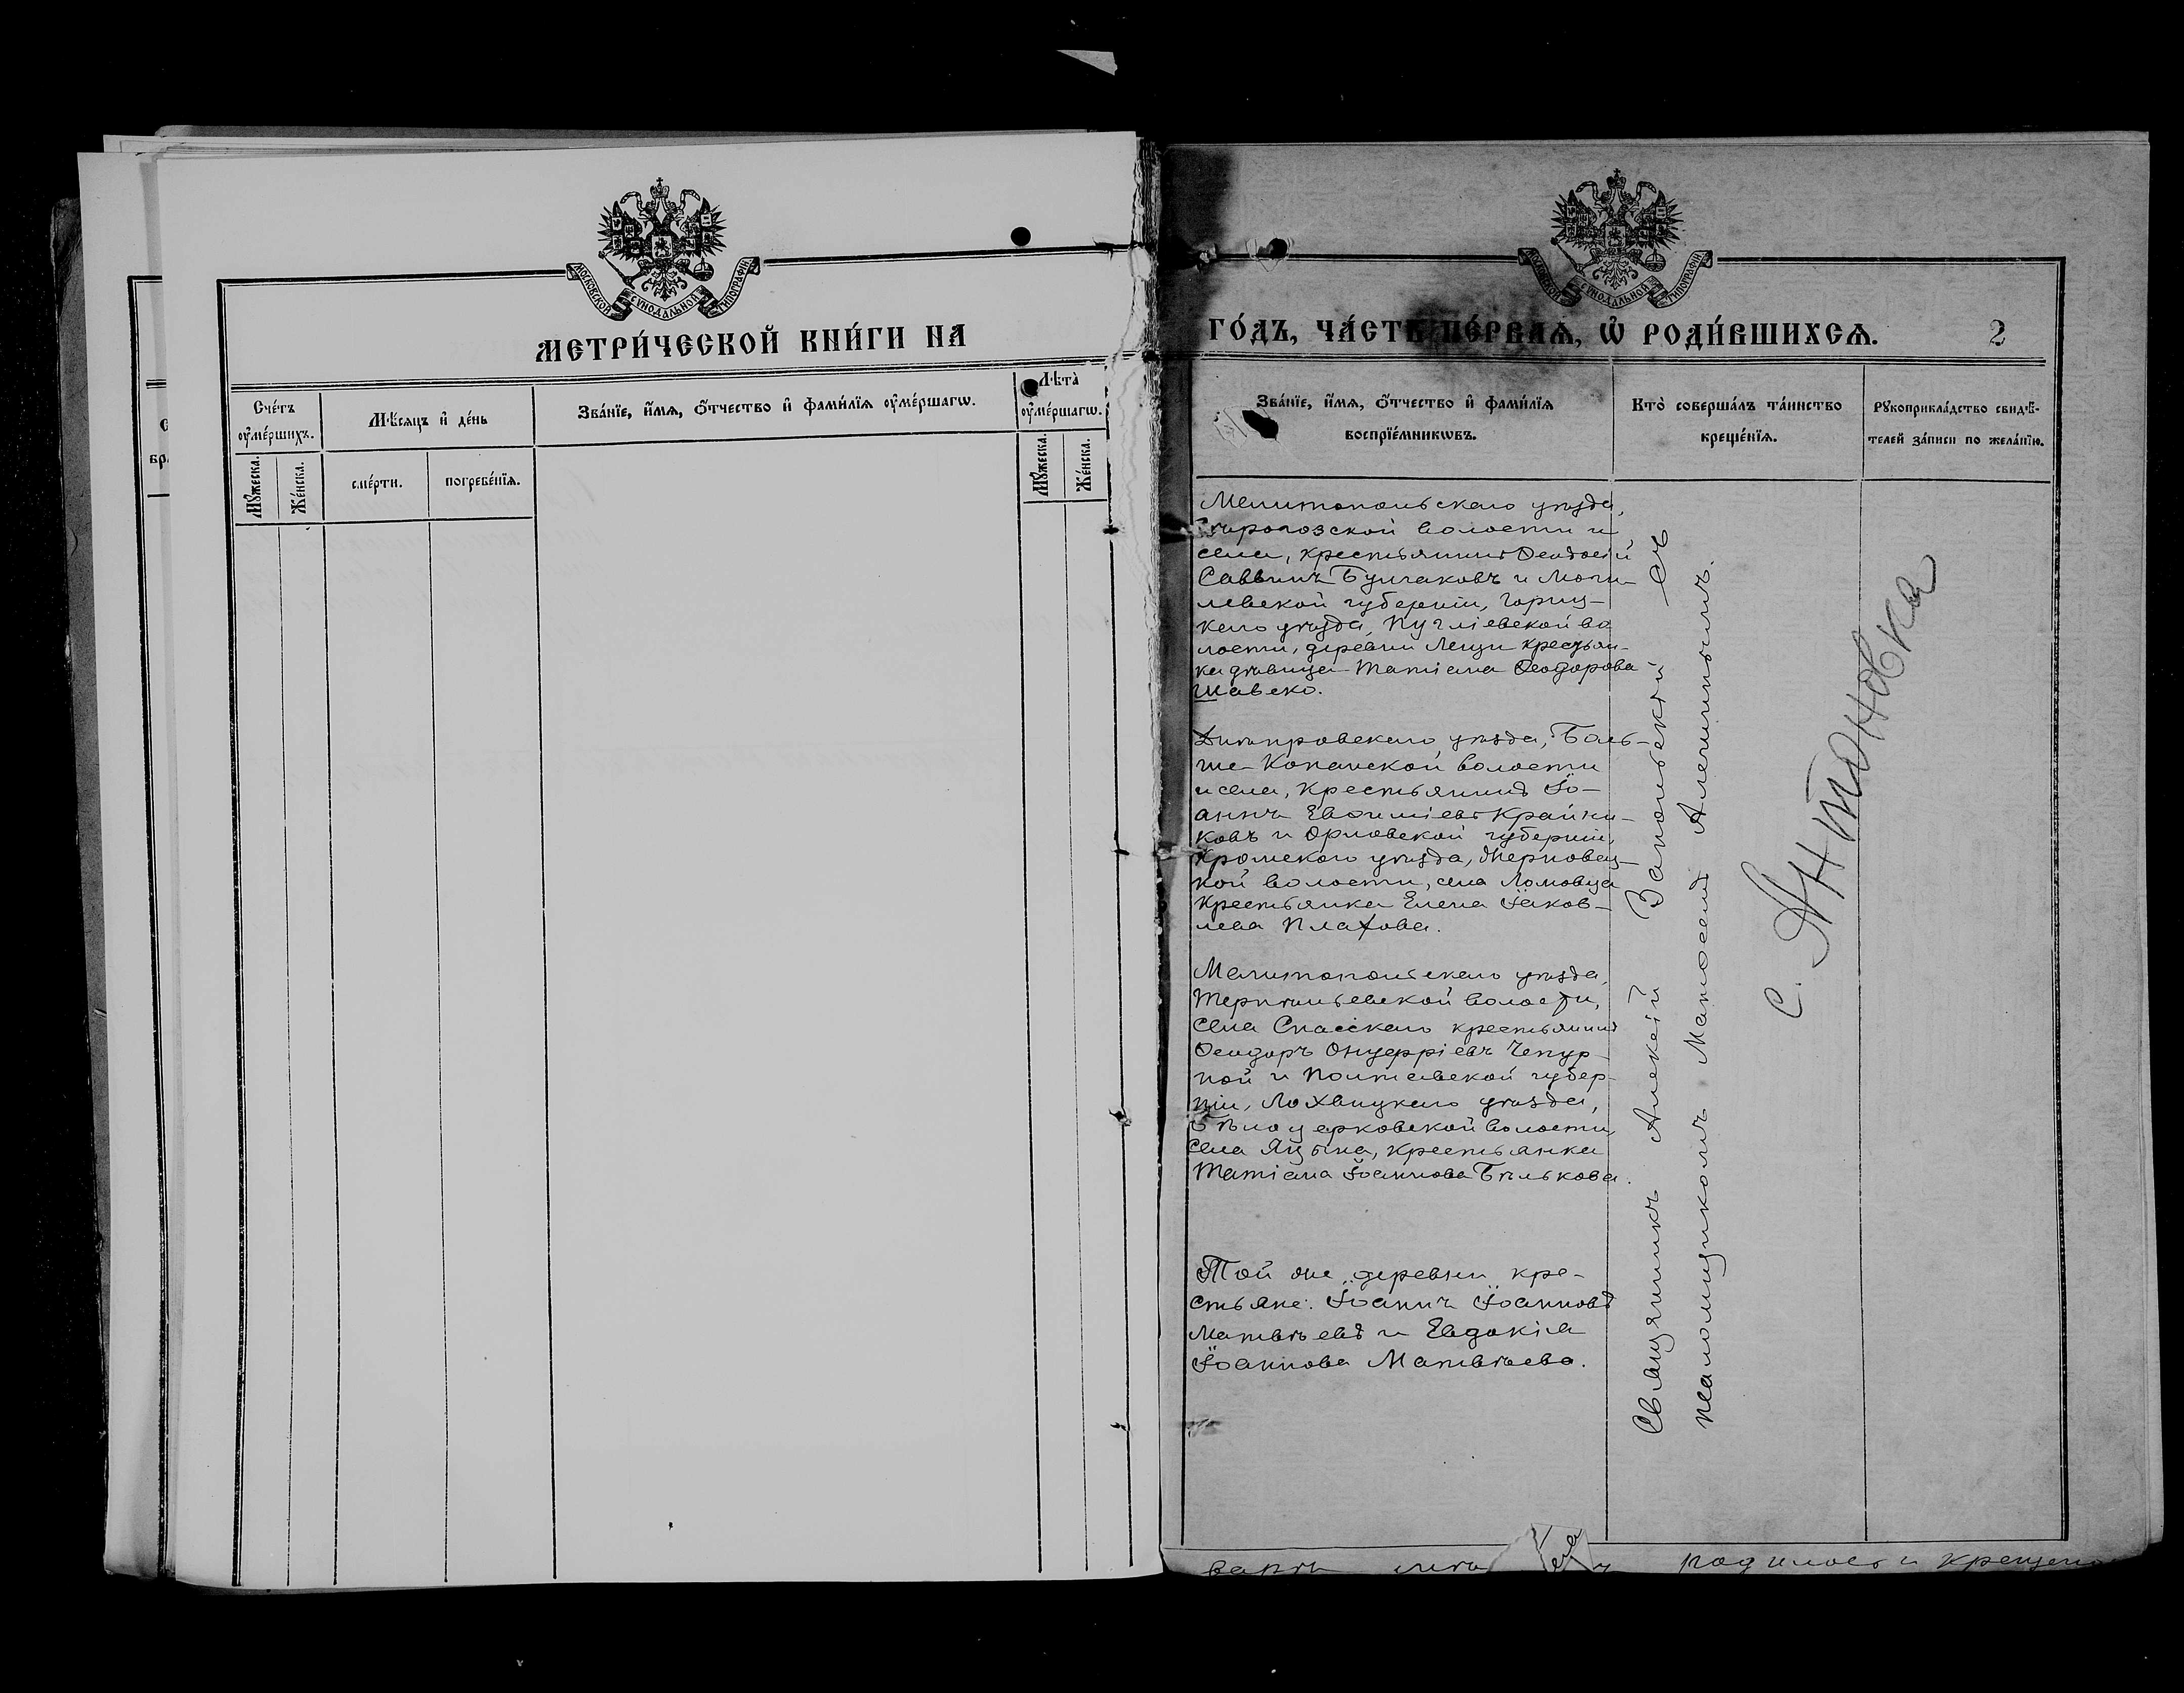 МОСКОВСКОЙ СѴНОДАЛЬНОЙ ТИПОГРАФІИ
МЕТРИ́ЧЕСКОЙ КНИ́ГИ НА
Сче́тъ
оу҆ме́ршихъ.
Мꙋ́жеска.
Же́нска.
Мѣ́сяцъ и҆ де́нь
сме́рти.
погребе́нїѧ.
Зва́нїе, и҆́мѧ, ѻ҆́тчество и҆ фами́лїѧ оу҆ме́ршагѡ.
Лѣта̀
оу҆ме́ршагѡ.
Мꙋ́жеска.
Же́нска.
МОСКОВСКОЙ СѴНОДАЛЬНОЙ ТИПОГРАФІИ
ГО́ДЪ, ЧА́СТЬ ПЕ́РВАѦ, Ѡ҆ РОДИ́ВШИХСѦ.
2
Зва́нїе, и҆́мѧ, ѻ҆́тчество и҆ фами́лїѧ
воспрїе́мникѡвъ.
Кто̀ соверша́лъ та́инство
креще́нїѧ.
Рꙋкоприкла́дство свидѣ́-
телей за́писи по жела́нїю.
Мелитопольскаго уѣзда,
волости и
села, крестьянинъ Ѳеодосій
Саввинъ Булгаковъ и Моги-
левской губерніи, Горец-
каго уѣзда, во
лости, деревни Ленци крестьян-
ка дѣвица Татіана Ѳеодорова
Шавеко.
Днѣпровскаго уѣзда, Боль-
ше-Копанской волости
и села, крестьянинъ Іо-
аннъ Евѳиміевъ Крайни-
ковъ и Орловской губерніи,
Кромскаго уѣзда,
кой волости, села Ломовца
крестьянка Елена Іаков-
лева Плахова.
Мелитопольскаго уѣзда,
Терпѣньевской волости,
села Спасскаго крестьянинъ
Ѳеодоръ Онуфріевъ Чепур-
ной и Полтавской губер-
ніи, Лохвицкаго уѣзда,
Бѣлоцерковской волости
села Яцына, крестьянка
Татіана Іоаннова Бѣлькова.
Той же деревни кре-
стьяне: Іоаннъ Іоанновъ
Матвѣевъ и Евдокія
Іоаннова Матвѣева.
Священникъ Алексій Запольскій съ
псаломщикомъ Матѳеемъ Алешинымъ.
с. Антоновка
родилось и крещено